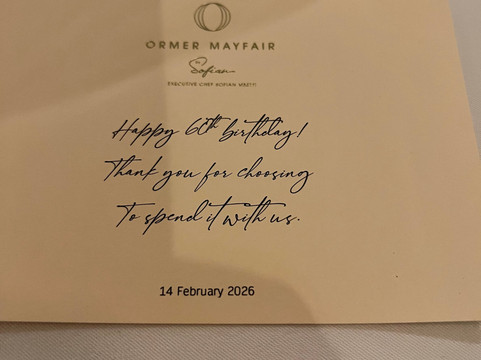 ORMER MAYFAIR
by
Sofian
EXECUTIVE CHEF SOFIAN MSETFI
Happy 60th birthday!
Thank you for choosing
To spend it with us.
14 February 2026